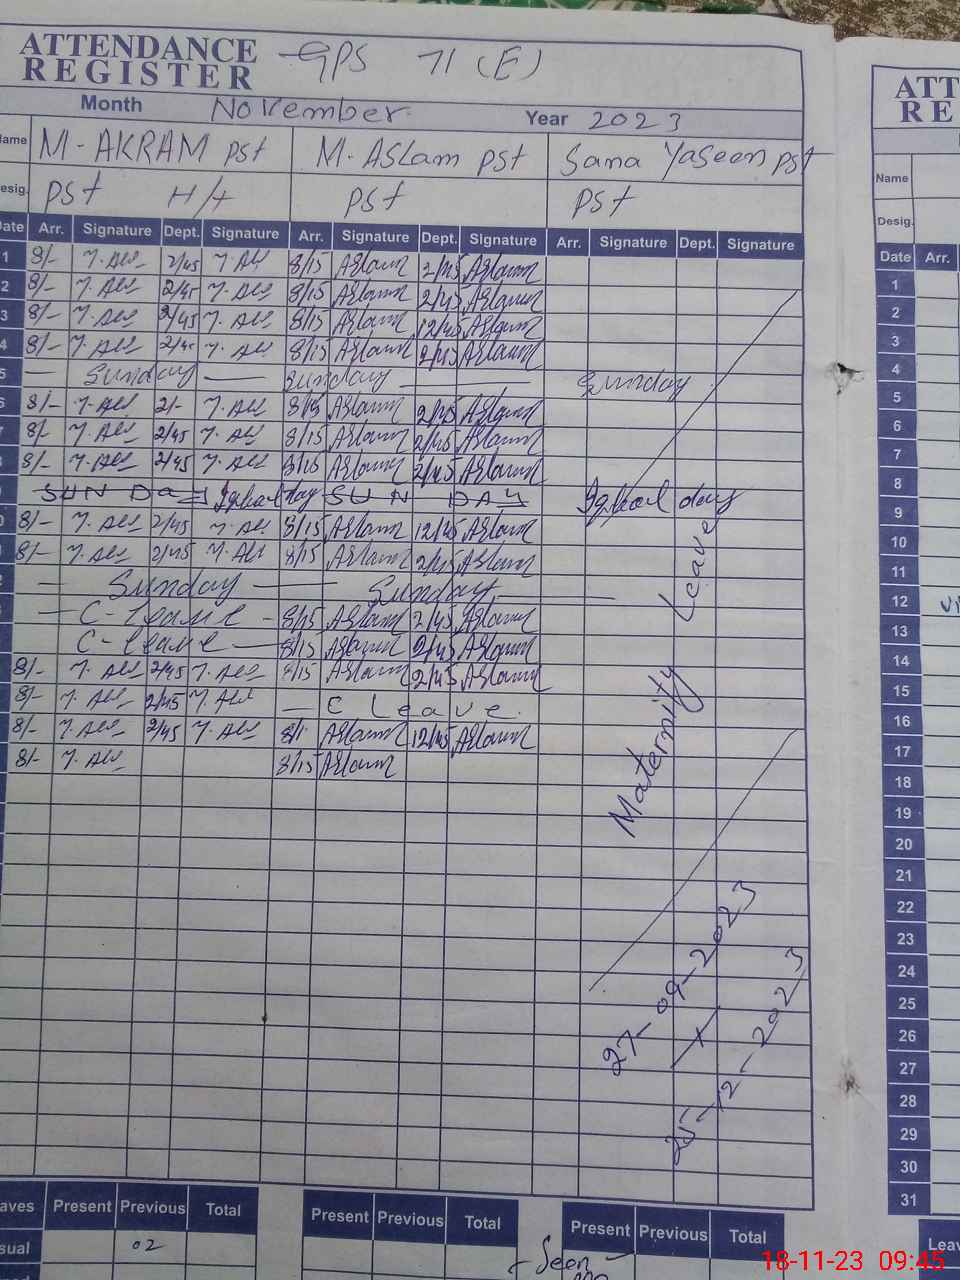 ATTENDANCE REGISTER GPS 71 (E)
Month November Year 2023
Name M-AKRAM PST M.Aslam PST Sana Yaseen PST
Desig. PST H/t PST PST
Date Arr. Signature Dept. Signature Arr. Signature Dept. Signature Arr. Signature Dept. Signature
1 8/- 2/45 8/15 Aslam 2/45 Aslam
2 8/- 2/45 8/15 Aslam 2/45 Aslam
3 8/- 2/45 8/15 Aslam 12/45 Aslam
4 8/- 2/45 8/15 Aslam 2/45 Aslam
5 Sunday Sunday Sunday
6 8/- 2/- 8/15 Aslam 2/45 Aslam
7 8/- 2/45 8/15 Aslam 2/45 Aslam
8/- 2/45 8/15 Aslam 2/45 Aslam
SUN Day Iqbal day SUN DAY Iqbal day
0 8/- 2/45 8/15 Aslam 12/45 Aslam
8/- 2/45 8/15 Aslam 2/45 Aslam
Sunday Sunday
C-leave 8/15 Aslam 2/45 Aslam
C-leave 8/15 Aslam 2/45 Aslam
8/- 2/45 8/15 Aslam 2/45 Aslam
8/- 2/45 C Leave
8/- 2/45 Aslam 12/45 Aslam
8/- 8/15 Aslam
Maternity Leave
27-09-2023
25-12-2023
Present Previous Total Present Previous Total Present Previous Total
02
Seen
ATT
RE
Name
Desig.
Date Arr.
1
2
3
4
5
6
7
8
9
10
11
12
13
14
15
16
17
18
19
20
21
22
23
24
25
26
27
28
29
30
31
18-11-23 09:45